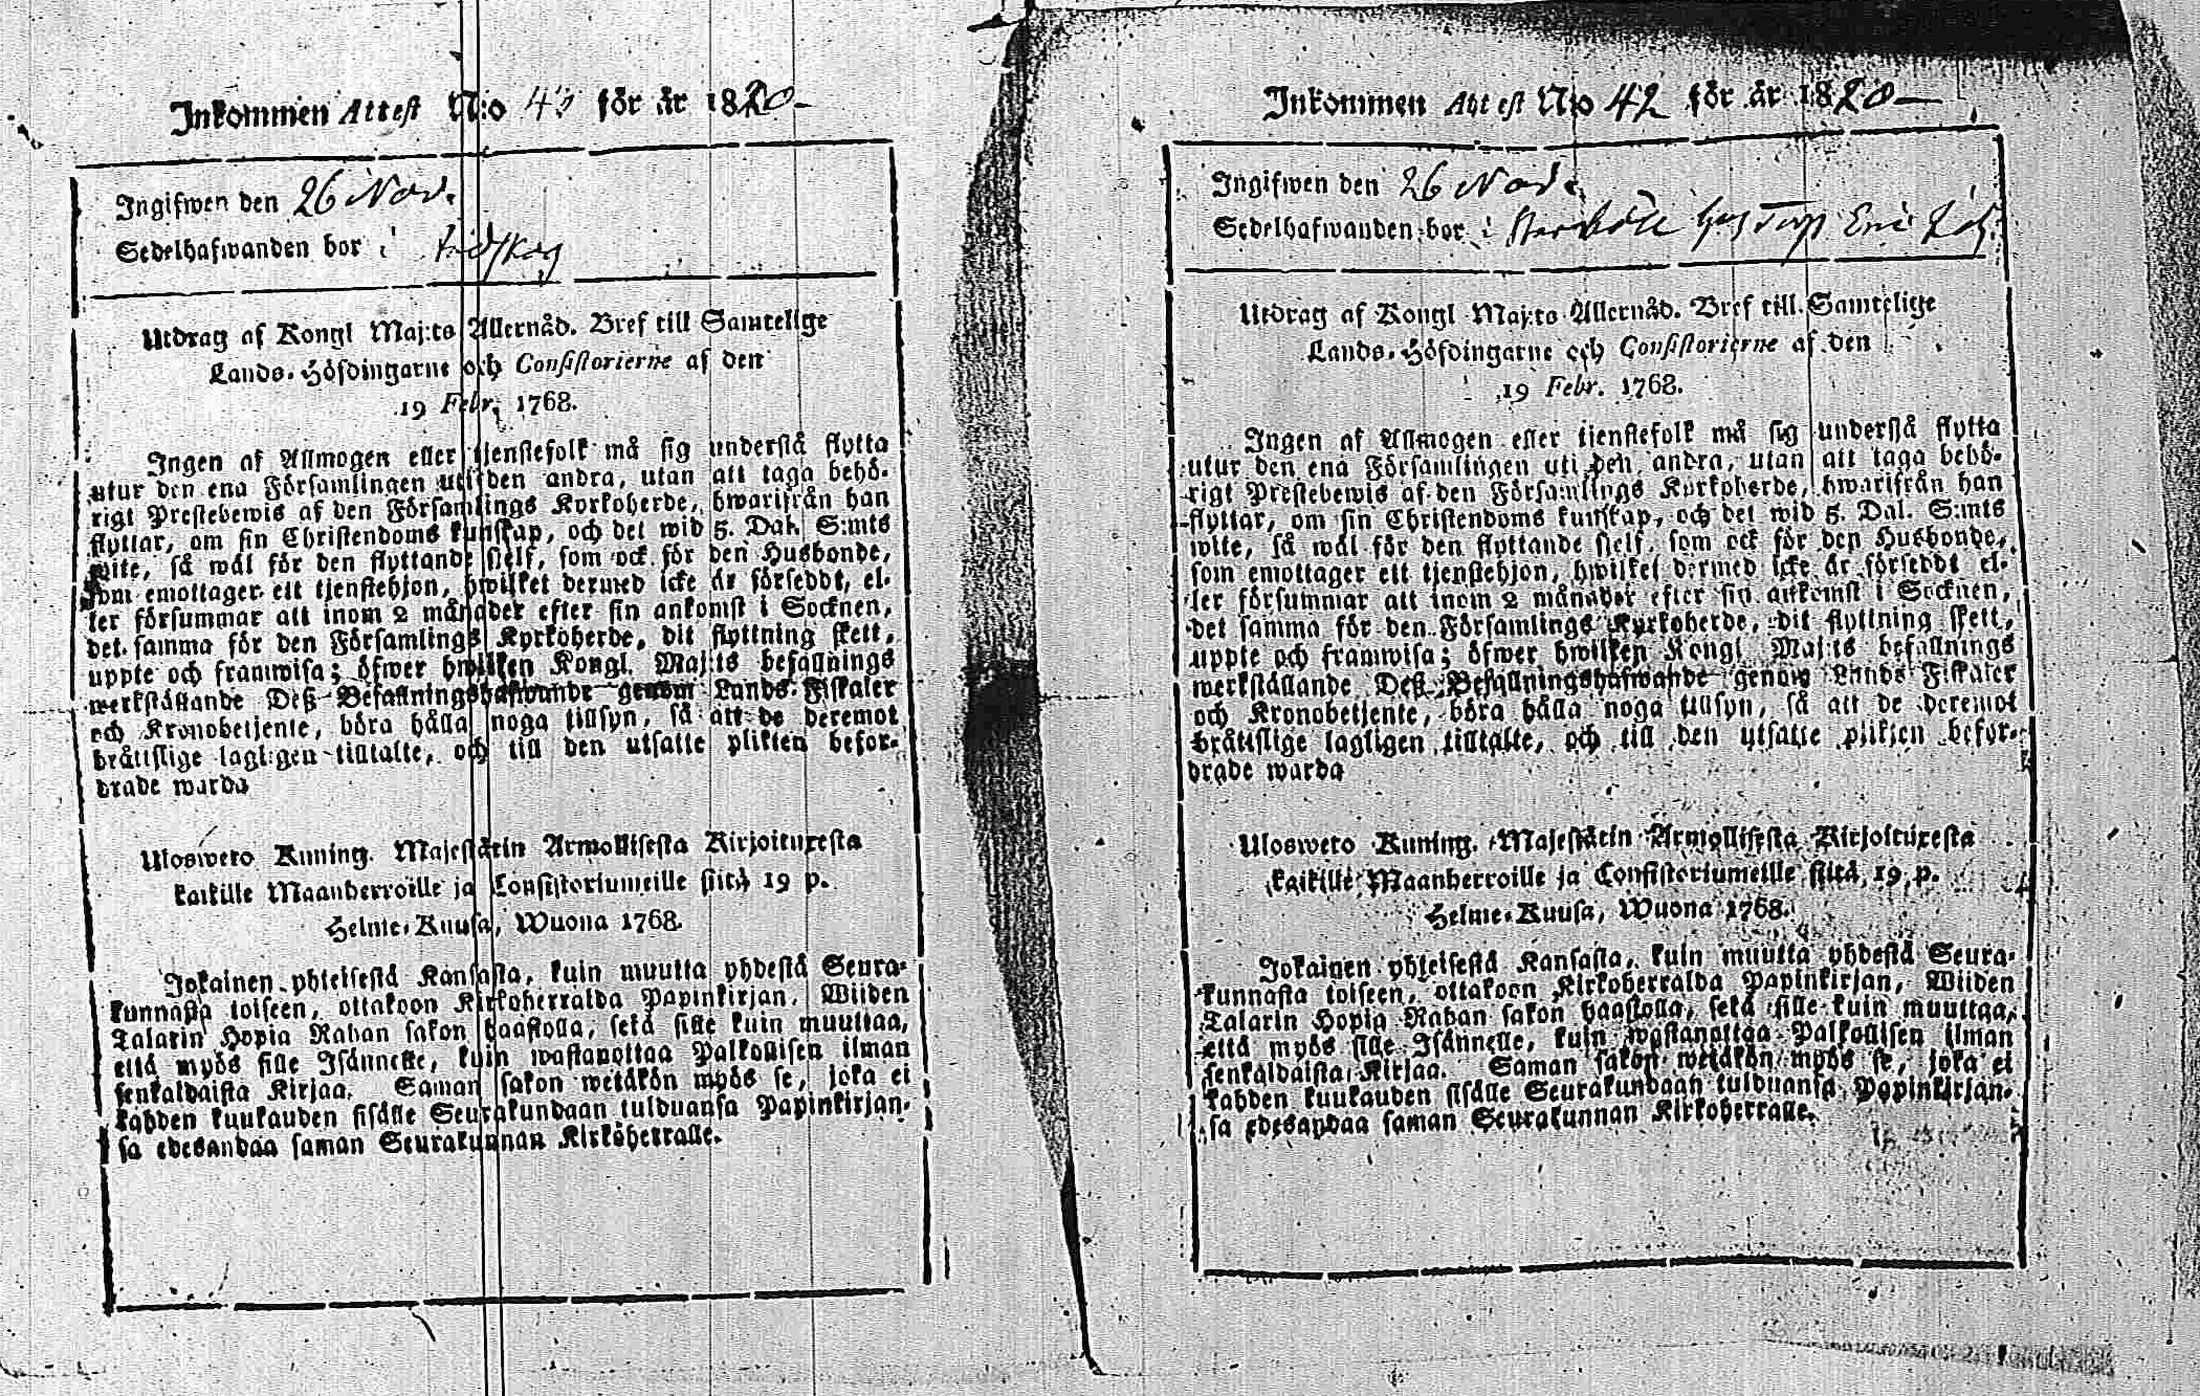 Inkommen Attest N:o för år 1820
Ingifwen den 26 Nov.
Sedelhafwanden bor i
Utdrag af Kongl Maj:ts Allernåd. Bref till Samtelige
Lands-Höfdingarne och Consistorierne af den
19 Febr. 1768.
Ingen af Allmogen eller tjenstefolk må sig understå flytta
utur den ena Församlingen uti den andra, utan att taga behö-
rigt Prestebewis af den Församlings Kyrkoherde, hwarifrån han
flyttar, om sin Christendoms kunskap, och det wid 5. Dal. S:mts
wite, så wäl för den flyttande sjelf, som ock för den Husbonde,
som emottager ett tjenstehjon, hwilket dermed icke är förseddt, el-
ler försummar att inom 2 månader efter sin ankomst i Socknen,
det samma för den Församlings Kyrkoherde, dit flyttning skett,
uppte och framwisa; öfwer hwilken Kongl. Maj:ts befallnings
werkställande Deß Befallningshafwande genom Lands-Fiskaler
och Kronobetjente, böra hålla noga tillsyn, så att de deremot
bråttslige lagligen tilltalte, och till den utsatte plikten befor-
drade warda
Ulosweto Kuning. Majestätin Armollisesta Kirjoituxesta
kaikille Maanherroille ja Consistoriumeille siitä 19 p.
Helme-Kuusa, Wuona 1768.
Jokainen yhteisestä Kansasta, kuin muutta yhdestä Seura-
kunnasta toiseen, ottakoon Kirkoherralda Papinkirjan, Wiiden
Talarin Hopia Rahan sakon haastolla, sekä sille kuin muuttaa,
että myös sille Isännelle, kuin wastanottaa Palkollisen ilman
senkaldaista Kirjaa. Saman sakon wetäkön myös se, joka ei
kahden kuukauden sisälle Seurakundaan tulduansa Papinkirjan-
sa edesandaa saman Seurakunnan Kirkoherralle.
Inkommen Attest N:o 42 för år 1820
Ingifwen den 26 Nov.
Sedelhafwanden bor i
Utdrag af Kongl Maj:ts Allernåd. Bref till Samtelige
Lands-Höfdingarne och Consistorierne af den
19 Febr. 1768.
Ingen af Allmogen eller tjenstefolk må sig understå flytta
utur den ena Församlingen uti den andra, utan att taga behö-
rigt Prestebewis af den Församlings Kyrkoherde, hwarifrån han
flyttar, om sin Christendoms kunskap, och det wid 5. Dal. S:mts
wite, så wäl för den flyttande sjelf, som ock för den Husbonde,
som emottager ett tjenstehjon, hwilket dermed icke är förseddt el-
ler försummar att inom 2 månader efter sin ankomst i Socknen,
det samma för den Församlings Kyrkoherde, dit flyttning skett,
uppte och framwisa; öfwer hwilken Kongl Maj:ts befallnings
werkställande Deß Befallningshafwande genom Lands-Fiskaler
och Kronobetjente, böra hålla noga tillsyn, så att de deremot
bråttslige lagligen tilltalte, och till den utsatte plikten befor-
drade warda
Ulosweto Kuning. Majestätin Armollisesta Kirjoituxesta
kaikille Maanherroille ja Consistoriumeille siitä 19 p.
Helme-Kuusa, Wuona 1768.
Jokainen yhteisestä Kansasta, kuin muutta yhdestä Seura-
kunnasta toiseen, ottakoon Kirkoherralda Papinkirjan, Wiiden
Talarin Hopia Rahan sakon haastolla, sekä sille kuin muuttaa,
että myös sille Isännelle, kuin wastanottaa Palkollisen ilman
senkaldaista Kirjaa. Saman sakon wetäkön myös se, joka ei
kahden kuukauden sisälle Seurakundaan tulduansa Papinkirjan-
sa edesandaa saman Seurakunnan Kirkoherralle.